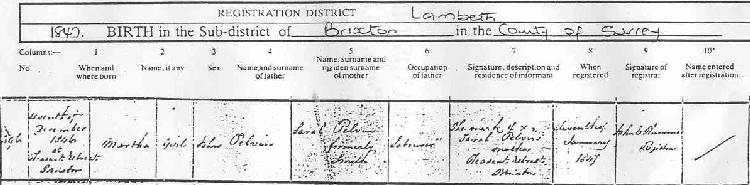 REGISTRATION DISTRICT Lambeth
1847. BIRTH in the Sub-district of Brixton in the County of Surrey
Columns:— 1 2 3 4 5 6 7 8 9 10*
No. When and where born Name, if any Sex Name and surname of father Name, surname and maiden surname of mother Occupation of father Signature, description and residence of informant When registered Signature of registrar Name entered after registration
December 1846 at Brixton
Martha
Girl
John
Sarah formerly Smith
Labourer
The mark of x Sarah mother Pleasant Retreat Brixton
Seventh January 1847
Registrar